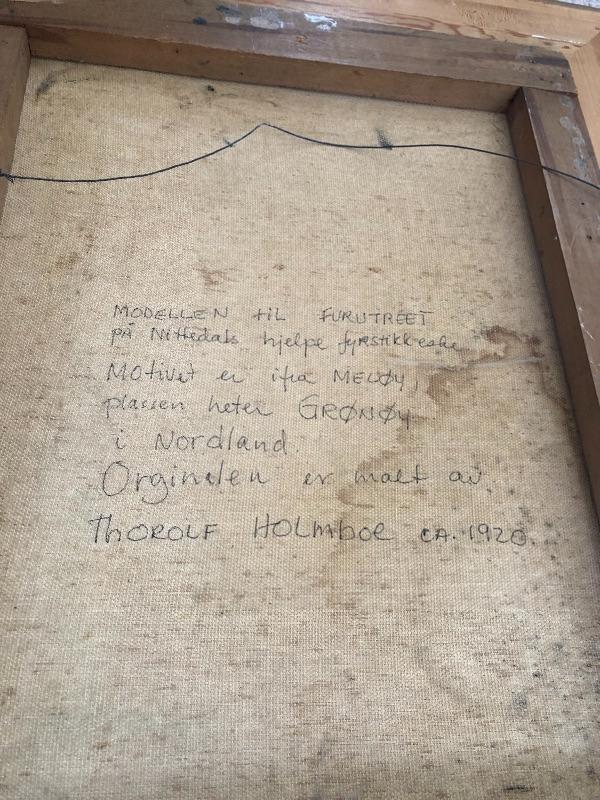 MODELLEN til FURUTREET
PÅ Nittedals hjelpe fyrstikkeske
Motivet er ifra MELØY,
plassen heter GRØNØY
i Nordland.
Orginalen er malt av.
ThOROLF HOLmboe CA. 1920.